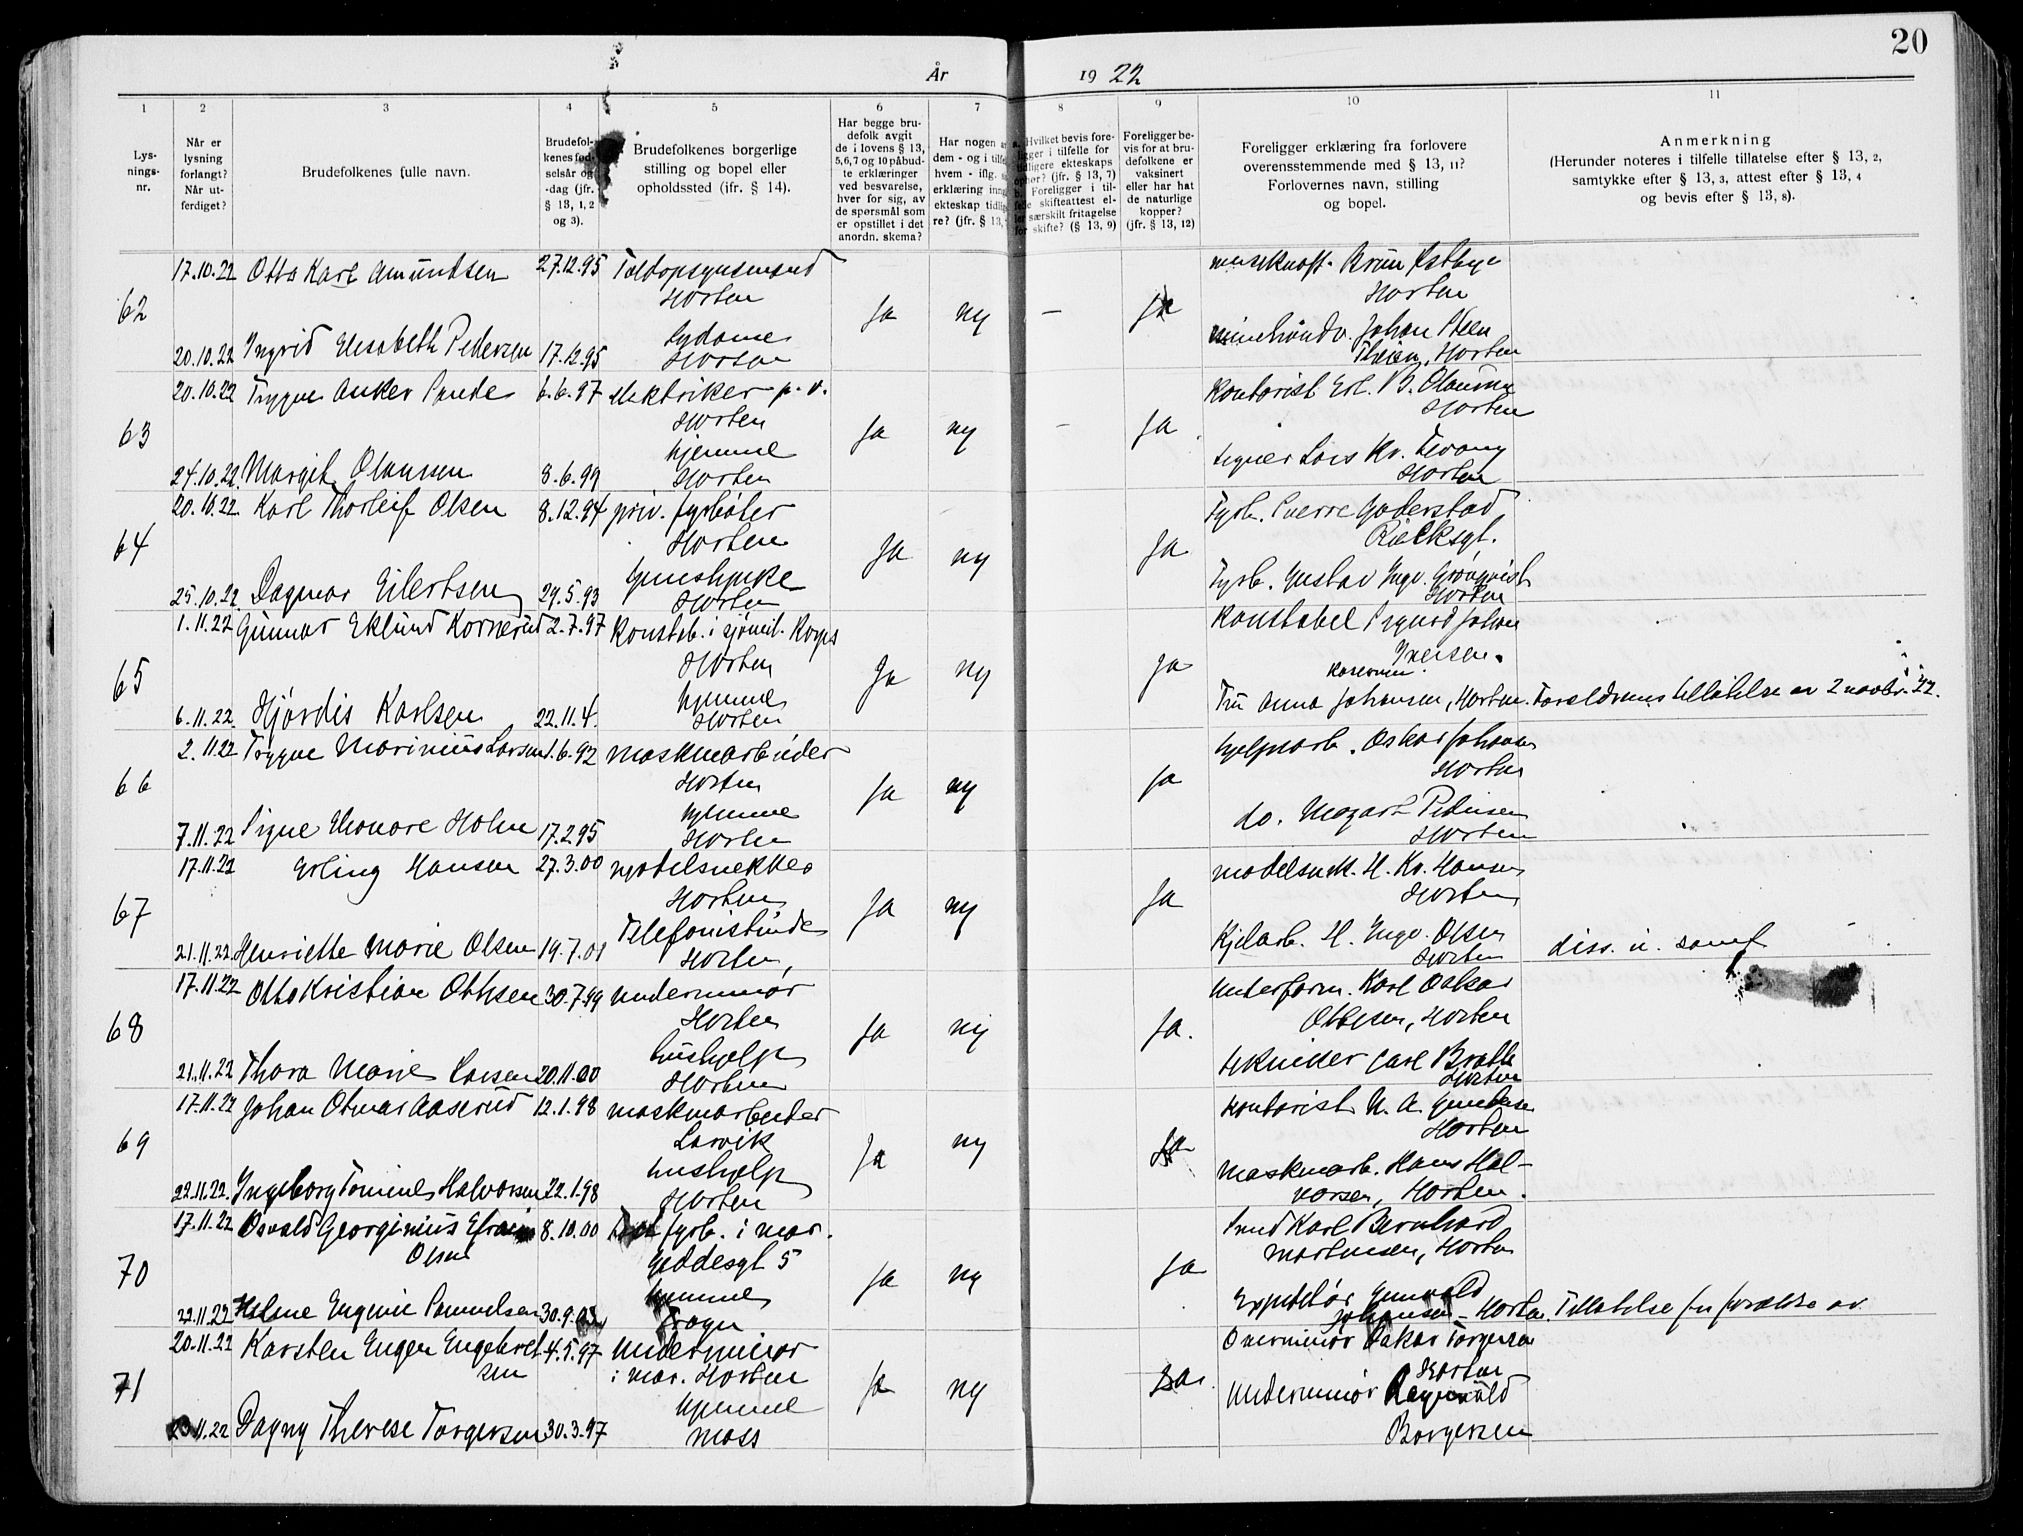 20
År 1922
1 2 3 4 5 6 7 8 9 10 11
Lys-
nings-
nr.
Når er
lysning
forlangt?
Når ut-
ferdiget?
Brudefolkenes fulle navn.
Brudefol-
kenes fød-
selsår og
-dag (jfr.
§ 13, 1, 2
og 3).
Brudefolkenes borgerlige
stilling og bopel eller
opholdssted (ifr. § 14).
Har begge bru-
defolk avgit
de i lovens § 13,
5,6,7 og 10 påbud-
te erklæringer
ved besvarelse,
hver for sig, av
de spørsmål som
er opstillet i det
anordn. skema?
Har nogen
dem - og i tilfe
hvem - iflg.
erklæring inng
ekteskap tidlig
re? (jfr. § 13,
a. Hvilket bevis fore-
ligger i tilfelle for
tidligere ekteskaps
ophør? (jfr. § 13, 7)
b. Foreligger i til-
felle skifteattest el-
ler særskilt fritagelse
for skifte? (§ 13, 9)
Foreligger be-
vis for at bru-
defolkene er
vaksinert
eller har hat
de naturlige
kopper?
(jfr. § 13, 12)
Foreligger erklæring fra forlovere
overensstemmende med § 13, 11?
Forlovernes navn, stilling
og bopel.
Anmerkning
(Herunder noteres i tilfelle tillatelse efter § 13, 2,
samtykke efter § 13, 3, attest efter § 13, 4
og bevis efter § 13, 8).
17.10.22 Otto Karl Amundsen 27.12.95 Toldopsynsmand
Horten Horten
62 Ja nej — Ja
Johan Steen
20.10.22 Ingrid Elisabeth Pedersen 17.12.95 Horten Horten
20.10.22 Trygve Anker Sande 6.6.97 elektriker p. v. Kontorist Erl. B. Olausen
Horten Horten
63 Ja nej — Ja
hjemme
24.10.22 Margit Olausen 8.6.99 Horten Horten
20.10.22 Karl Thorleif Olsen 8.12.94 priv. fyrbøter Fyrb. Sverre
Horten
64 Ja nej Ja
Fyrb. Gustav Ingv. Grönqvist
25.10.22 Dagmar Eilertsen 29.5.93 Horten Horten
1.11.22 Gunnar Eklund Kornerud 2.7.97 Konstab. i sjømil. Korps Konstabel Sigurd Johan
Horten Iversen.
65 Ja nej Ja
hjemme Fru Anna Johansen, Horten. Forældrenes tillatelse av 2 novbr. 22.
6.11.22 Hjördis Karlsen 22.11.4. Horten
2.11.22 Trygve Marinius Larsen 1.6.92 maskinarbeider hjelpearb. Oskar Johansen
Horten Horten
66 Ja nej Ja
hjemme do. Mozart Pedersen
7.11.22 Signe Elionore Holm 17.2.95 Horten Horten
17.11.22 Erling Hansen 27.3.00 modelsnekker modelsnek. H. Kr. Hansen
Horten Horten
67 Ja nej Ja
Telefonistinde Kjelarb. H. Ingv. Olsen
21.11.22 Henriette Marie Olsen 19.7.01 Horten, Horten diss. u. samf
17.11.22 Otto Kristian Ottesen 30.7.99 underminør Underform. Karl Oskar
Horten Ottesen, Horten
68 Ja nej Ja.
hushjelp tekniker Carl Bratt
21.11.22 Thora Marie Larsen 20.11.00 Horten Horten
17.11.22 Johan Otmar Aaserud 12.1.98 maskinarbeider kontorist N. A.
Larvik Horten
69 Ja nej Ja
hushjelp maskinarb. Hans Hal-
22.11.22. Ingeborg Tomine Halvorsen 22.1.98 Horten vorsen, Horten.
17.11.22 Osvald Georginius Efraim 8.10.00 fyrb. i mar. Smed Karl Bernhard
Olsen Geddesgt 5 Martinsen, Horten
70 Ja nej Ja
hjemme Expeditør
22.11.22 Helene Eugenie Samuelsen 30.9.03 Frogn Johansen – Horten. Tillatelse fra forældre av
20.11.22 Karsten Eugen Engebret 4.5.97 Underminør Overminør Oskar Torgersen
sen i mar. Horten Horten
71 Ja nej Ja.
hjemme Underminør Ragnvald
23.11.22 Dagny Therese Torgersen 30.3.97 Moss Borgersen